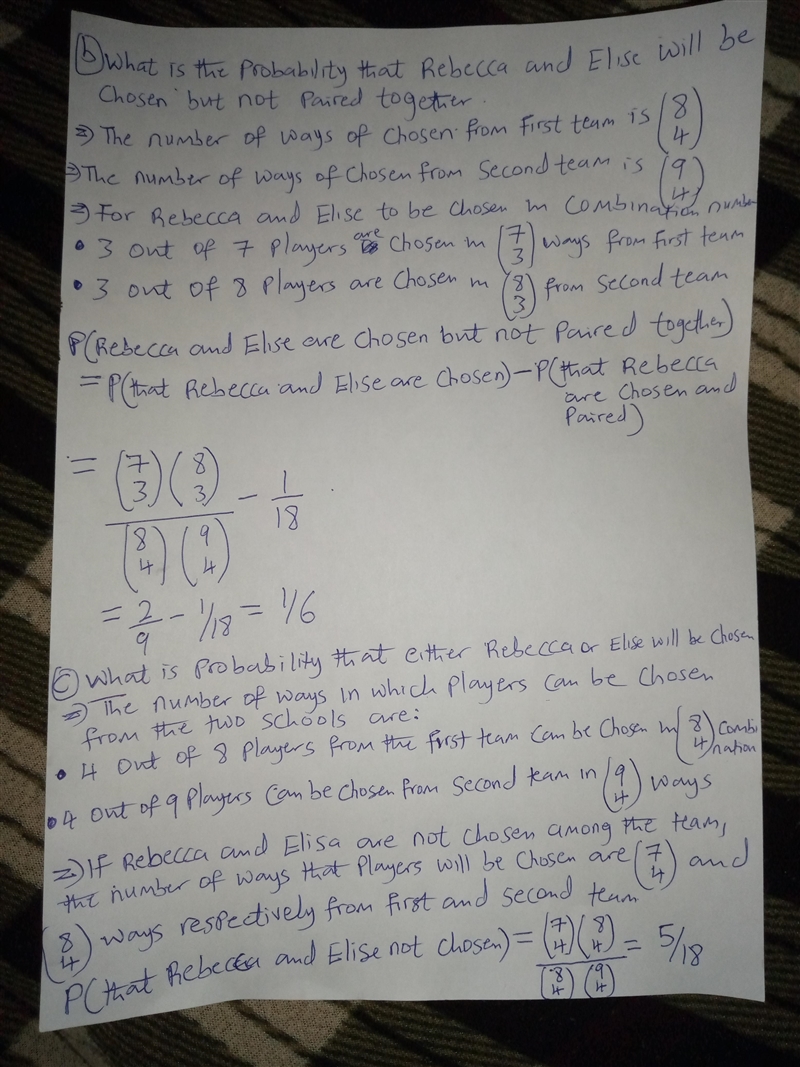 (b) What is the Probability that Rebecca and Elise will be
Chosen but not Paired together.
⇒ The number of ways of Chosen from First team is (8 4)
⇒ The number of ways of Chosen from Second team is (9 4)
⇒ For Rebecca and Elise to be Chosen in Combination number
• 3 out of 7 Players are Chosen in (7 3) ways from first team
• 3 out of 8 Players are Chosen in (8 3) from Second team
P(Rebecca and Elise are Chosen but not Paired together)
= P(that Rebecca and Elise are Chosen) - P(that Rebecca
are Chosen and
Paired)
= (7 3)(8 3) / (8 4)(9 4) - 1/18
= 2/9 - 1/18 = 1/6
(c) What is Probability that either Rebecca or Elise will be Chosen
⇒ The number of ways in which Players can be Chosen
from the two schools are:
• 4 out of 8 Players from the first team can be Chosen in (8 4) Combi
nation
• 4 out of 9 Players Can be chosen from Second team in (9 4) ways
⇒ If Rebecca and Elisa are not chosen among the team,
the number of ways that Players will be Chosen are (7 4) and
(8 4) ways respectively from first and second team
P(that Rebecca and Elise not chosen) = (7 4)(8 4) / (8 4)(9 4) = 5/18